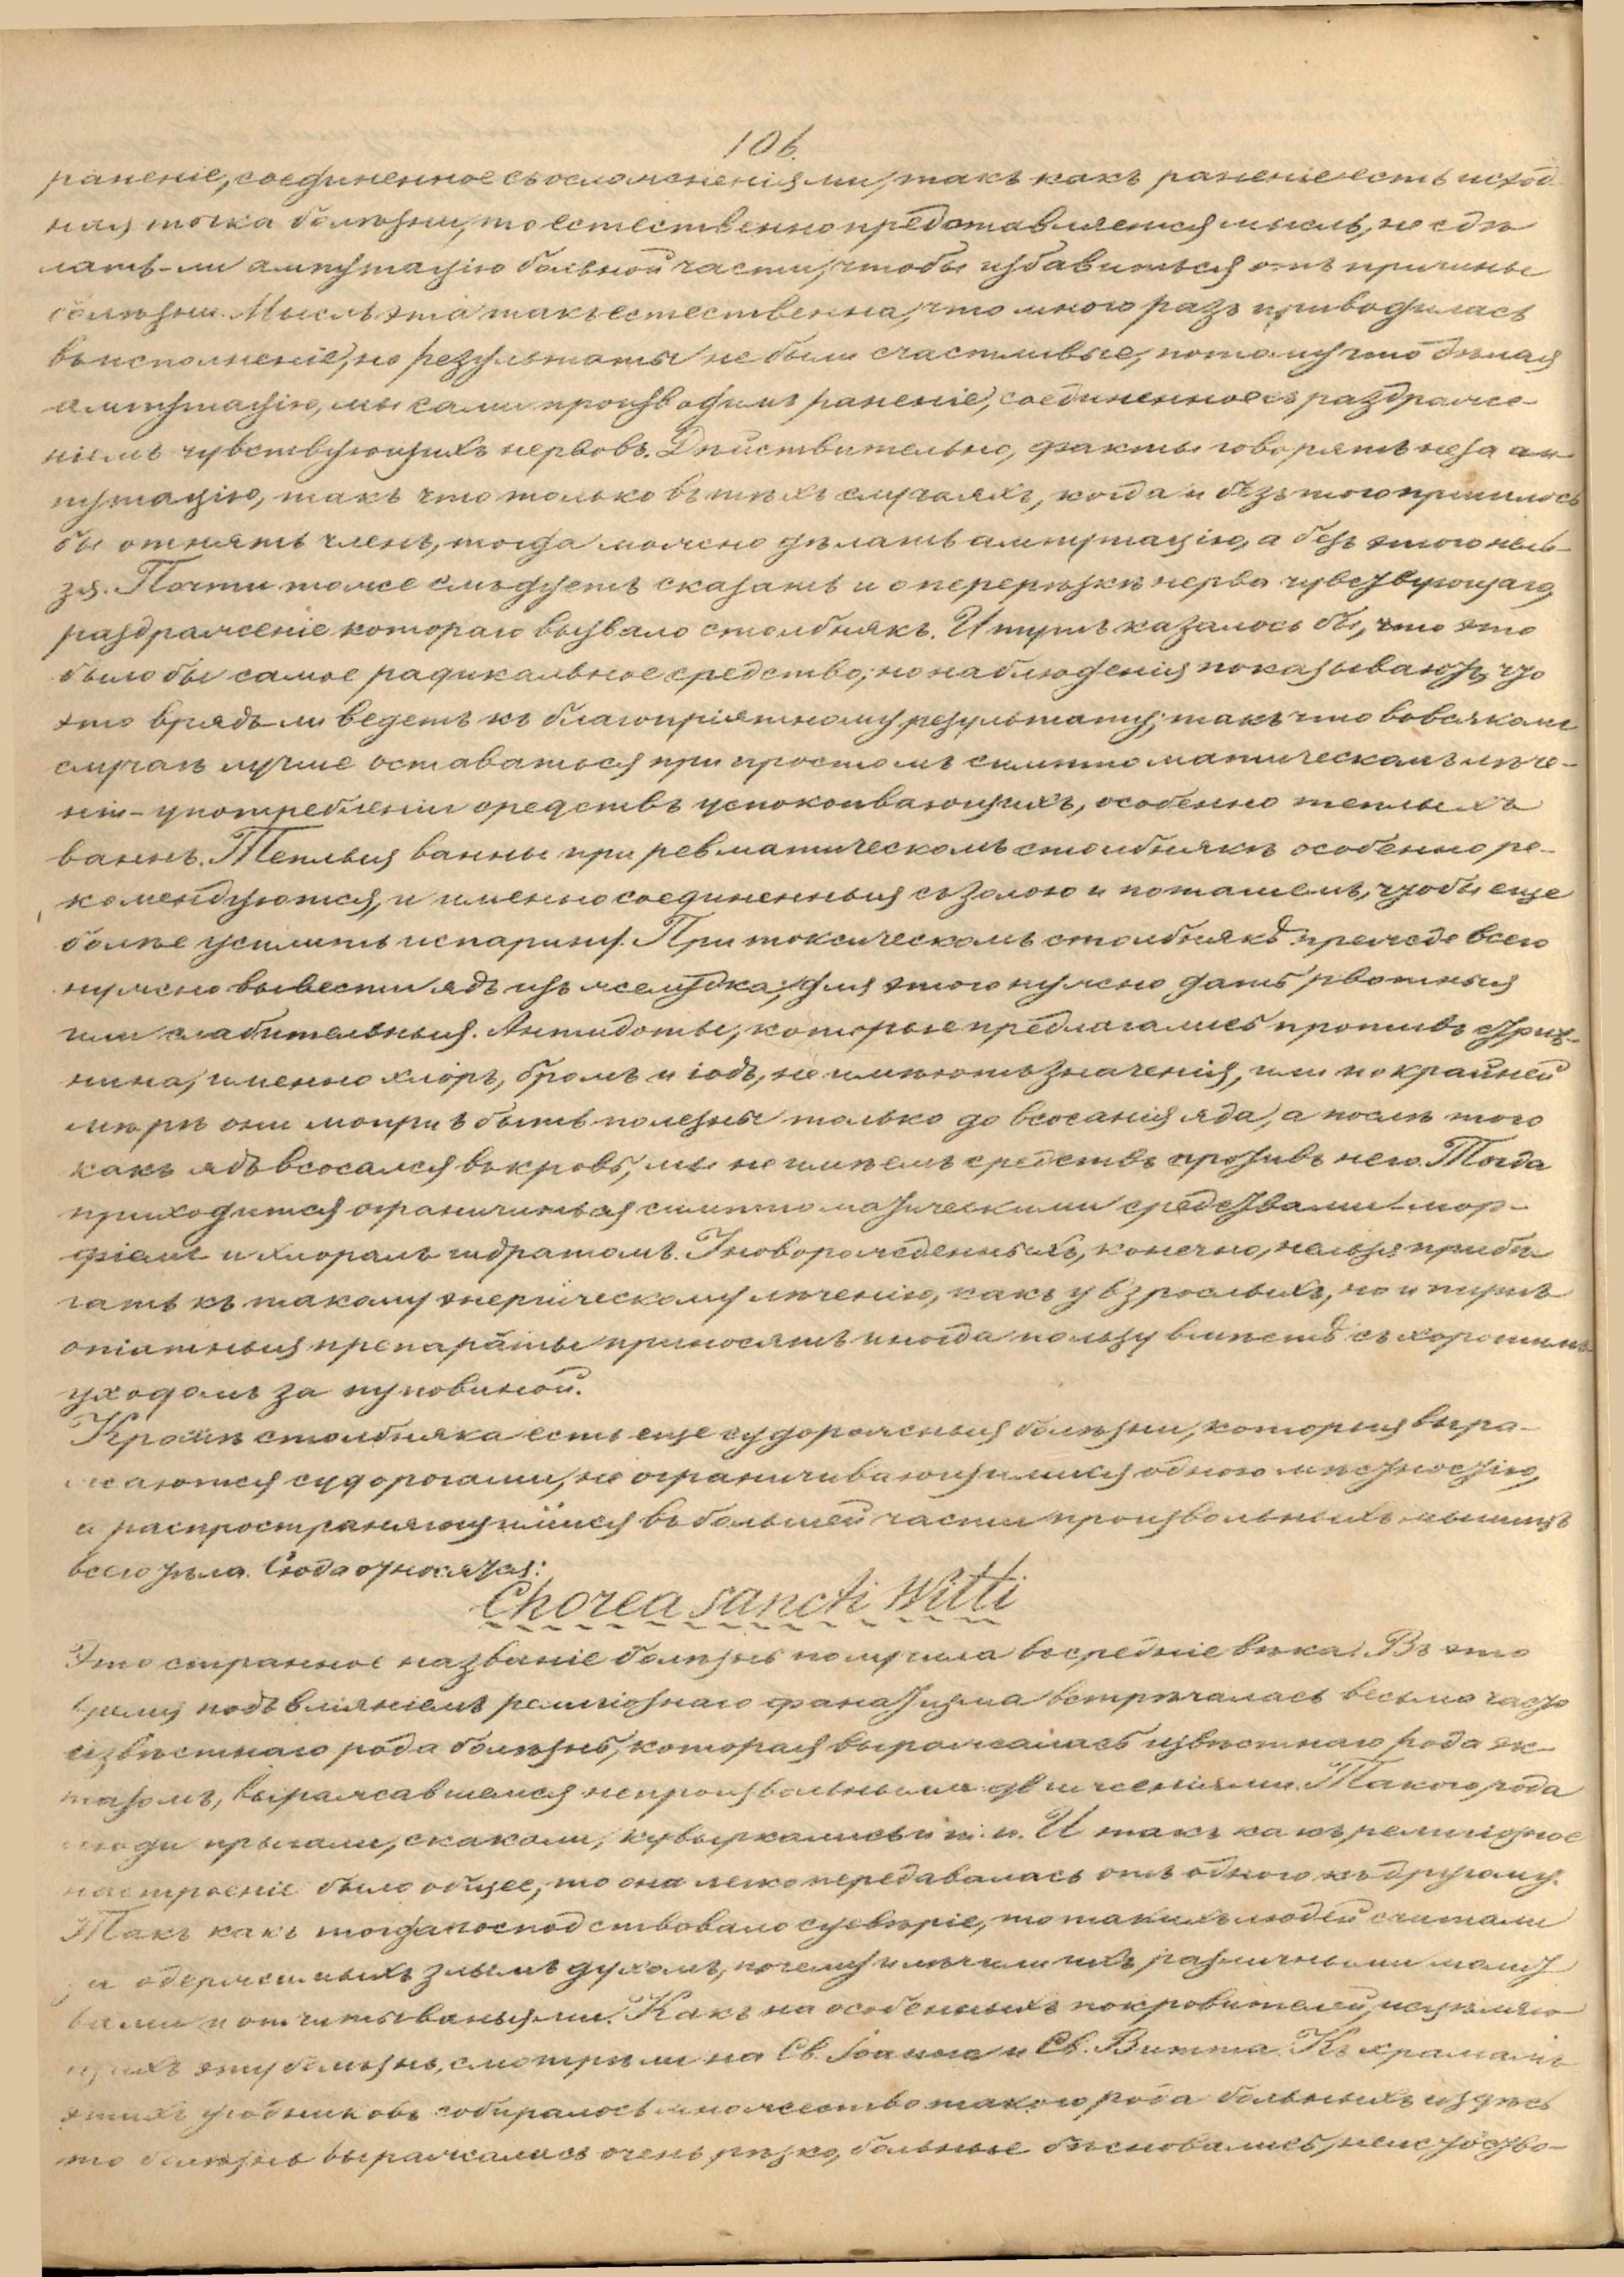 106.
раненіе, соединенное съ осложненіями, такъ какъ раненіе есть исход-
ная точка болѣзни, то естественно представляется мысль, не сдѣ
лать-ли ампутацію больной части, чтобы избавиться отъ причины
болѣзни. Мысль эта такъ естественна, что много разъ приводилась
въ исполненіе, но результаты не были счастливые, потому что дѣлая
ампутацію, мы сами производимъ раненіе, соединенное съ раздраже-
ніемъ чувствующихъ нервовъ. Дѣйствительно, факты говорятъ не за ам
путацію, такъ что только въ тѣхъ случаяхъ, когда и безъ того пришлось
бы отнять членъ, тогда можно дѣлать ампутацію, а безъ этого нель-
зя. Почти тоже слѣдуетъ сказать и о перерѣзкѣ нерва чувствующаго,
раздраженіе котораго вызвало столбнякъ. И тутъ казалось бы, что это
было бы самое радикальное средство; но наблюденія показываютъ, что
это врядъ ли ведетъ къ благопріятному результату; такъ что во всякомъ
случаѣ лучше оставаться при простомъ симптоматическомъ лѣче-
ніи - употребленіи средствъ успокоивающихъ, особенно теплыхъ
ваннъ. Теплыя ванны при ревматическомъ столбнякѣ особенно ре-
комендуются, и именно соединенныя съ золою и поташемъ, чтобы еще
болѣе усилить испарину. При токсическомъ столбнякѣ прежде всего
нужно вывести ядъ изъ желудка; для этого нужно дать рвотныя
или слабительныя. Антидоты, которые предлагались противъ стрих-
нина, именно хлоръ, бромъ и іодъ, не имѣютъ значенія, или по крайней
мѣрѣ они могутъ быть полезны только до всосанія яда, а послѣ того
какъ ядъ всосался въ кровь, мы не имѣемъ средствъ противъ него. Тогда
приходится ограничиться симптоматическими средствами: мор-
фіемъ и хлоралъ гидратомъ. У новорожденныхъ, конечно, нельзя прибѣ
гать къ такому энергическому лѣченію, какъ у взрослыхъ, но и тутъ
опіатныя препараты приносятъ иногда пользу вмѣстѣ съ хорошимъ
уходомъ за пуповиной.
Кромѣ столбняка есть еще судорожныя болѣзни, которыя выра-
жаются судорогами, не ограничивающимися одною мѣстностію,
а распространяющимися въ большей части произвольныхъ мышцъ
всего тѣла. Сюда относятся:
Chorea sancti Witti
Это странное названіе болѣзнь получила въ средніе вѣка. Въ это
время подъ вліяніемъ религіознаго фанатизма встрѣчалась весьма часто
извѣстнаго рода болѣзнь, которая выражалась извѣстнаго рода эк-
тазомъ, выражавшемся непроизвольными движеніями. Такого рода
люди прыгали, скакали, кувыркались и т. п. И такъ какъ религіозное
настроеніе было общее, то она легко передавалась отъ одного къ другому.
Такъ какъ тогда господствовало суевѣріе, то такихъ людей считали
за одержимыхъ злымъ духомъ, почему и лѣчили ихъ различными молит
вами и отчитываньями. Какъ на особенныхъ покровителей, исцѣляю
щихъ эту болѣзнь, смотрѣли на Св. Іоанна и Св. Витта. Къ храмамъ
этихъ угодниковъ собиралось множество такого рода больныхъ и здѣсь
то болѣзнь выражалась очень рѣзко, больные бѣсновались, неистовство-